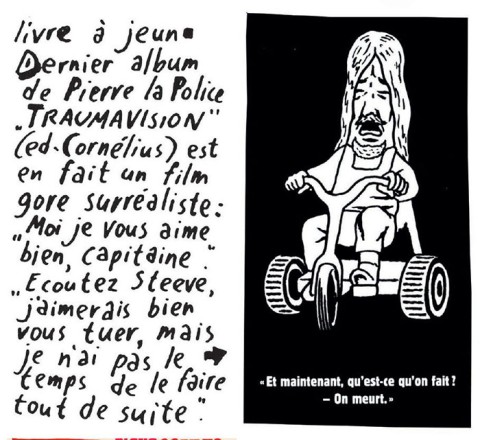 livre à jeun.
Dernier album
de Pierre la Police
"TRAUMAVISION"
(ed. Cornélius) est
en fait un film
gore surréaliste:
"Moi je vous aime
bien, capitaine".
"Ecoutez Steeve,
j'aimerais bien
vous tuer, mais
je n'ai pas le
temps de le faire
tout de suite".
« Et maintenant, qu'est-ce qu'on fait ?
– On meurt. »